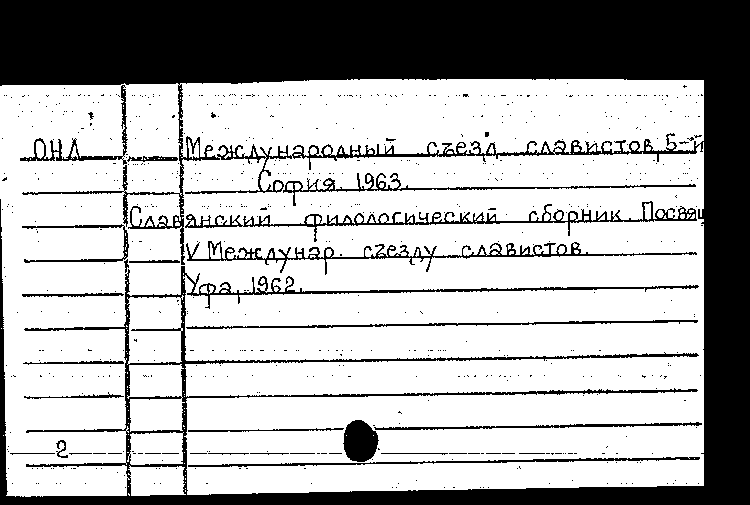 ОНЛ Международный съезд славистов, 5-й
София. 1963.
Славянский филологический сборник. Посвящ
V Междунар. съезду славистов.
Уфа, 1962.
2